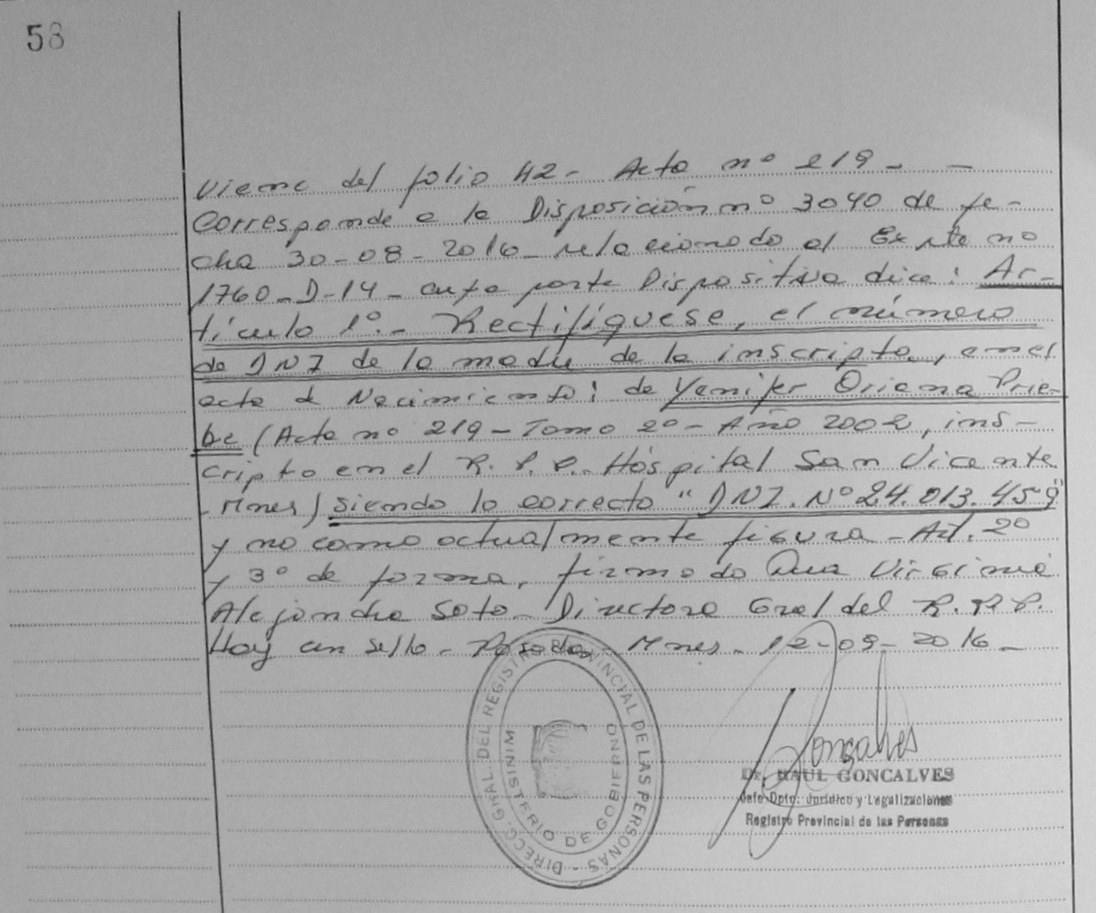 58
Viene del folio 42 - Acta nº 219 - -
Corresponde a la Disposición nº 3040 de fe-
cha 30-08-2016 relacionado al Expte nº
1760-D-14 - cuya parte Dispositiva dice: Ar-
tículo 1º.- Rectifíquese, el número
de DNI de la madre de la inscripta, en el
acta de Nacimiento: de Yenifer Oriana Prie-
be (Acta nº 219 - Tomo 2º - Año 2002, ins-
cripta en el R.P.P. Hospital San Vicente
- Mnes) siendo lo correcto "DNI. Nº 24.013.459"
y no como actualmente figura - Art. 2º
y 3º de forma, firmado Dra Virginia
Alejandra Soto - Directora Gral del R.P.P.
Hay un sello - Posadas - Mnes - 12-09-2016 -
DIRECC. GRAL. DEL REGISTRO PROVINCIAL DE LAS PERSONAS -
MINISTERIO DE GOBIERNO
Goncalves
Dr. RAUL GONCALVES
Jefe Dpto. Jurídico y Legalizaciones
Registro Provincial de las Personas